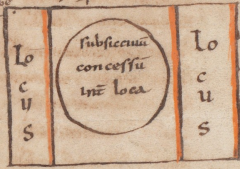 Lo
c
u
s
subsicciuũ
concessũ
int̃ loca
Lo
c
u
s